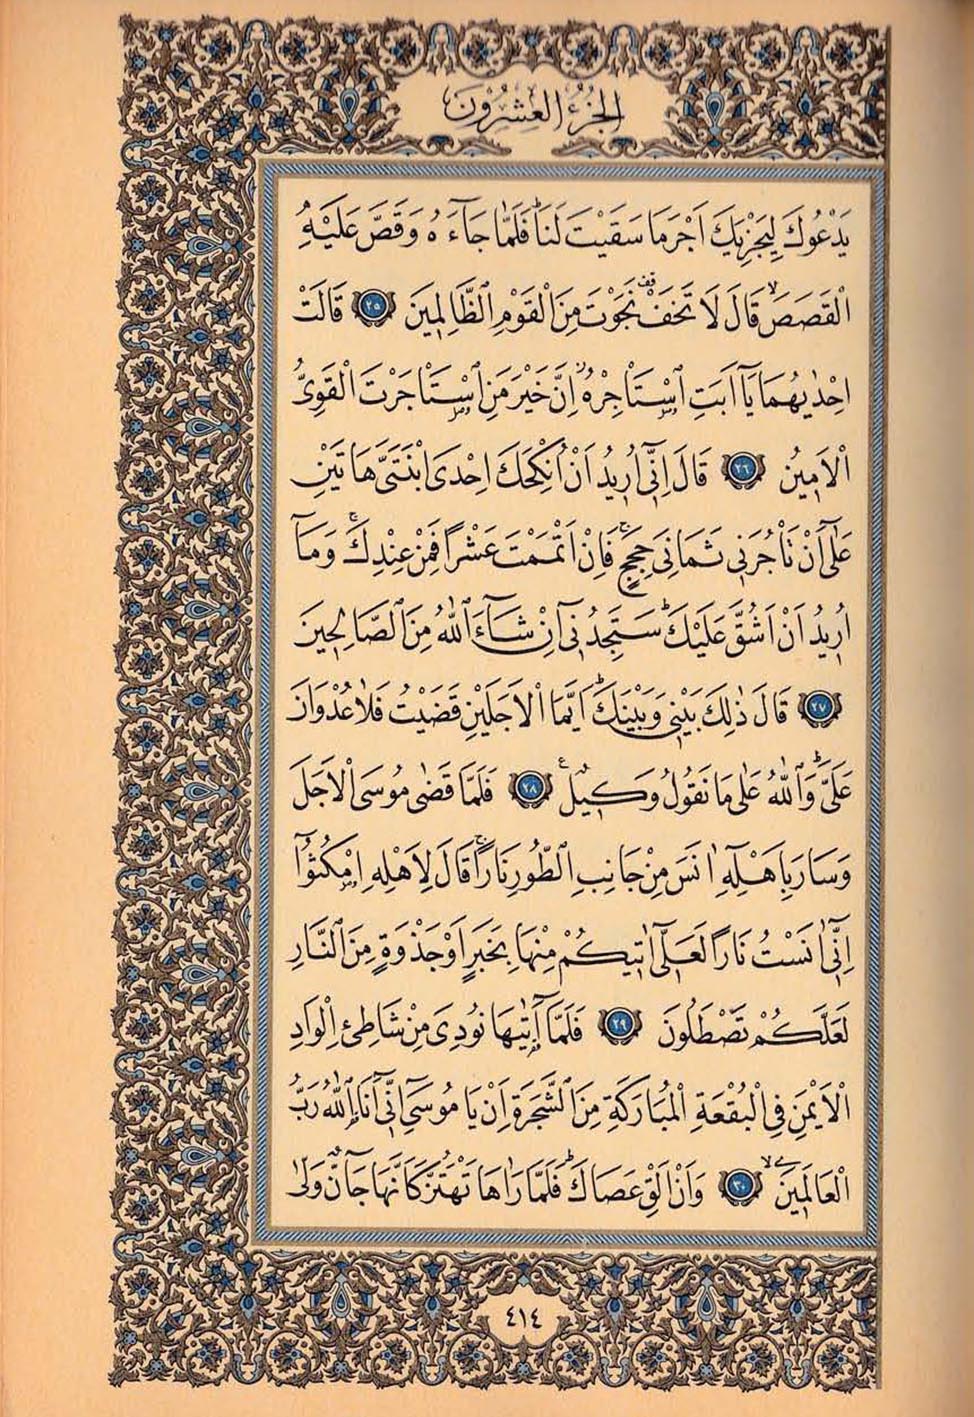 الجزء العشرون
يَدْعُوكَ لِيَجْزِيَكَ اَجْرَ مَا سَقَيْتَ لَنَاۜ فَلَمَّا جَآءَهُ وَقَصَّ عَلَيْهِ
الْقَصَصَۙ قَالَ لَا تَخَفْ۠ نَجَوْتَ مِنَ الْقَوْمِ الظَّالِمٖينَ ٢٥ قَالَتْ
اِحْدٰيهُمَا يَآ اَبَتِ اسْتَأْجِرْهُۘ اِنَّ خَيْرَ مَنِ اسْتَأْجَرْتَ الْقَوِىُّ
الْاَمٖينُ ٢٦ قَالَ اِنّٖٓى اُرٖيدُ اَنْ اُنْكِحَكَ اِحْدَى ابْنَتَىَّ هَاتَيْنِ
عَلٰٓى اَنْ تَأْجُرَنٖى ثَمَانِىَ حِجَجٍۚ فَاِنْ اَتْمَمْتَ عَشْرًا فَمِنْ عِنْدِكَۚ وَمَآ
اُرٖيدُ اَنْ اَشُقَّ عَلَيْكَۜ سَتَجِدُنٖٓى اِنْ شَآءَ اللّٰهُ مِنَ الصَّالِحٖينَ
٢٧ قَالَ ذٰلِكَ بَيْنٖى وَبَيْنَكَۜ اَيَّمَا الْاَجَلَيْنِ قَضَيْتُ فَلَا عُدْوَانَ
عَلَىَّۜ وَاللّٰهُ عَلٰى مَا نَقُولُ وَكٖيلٌ ۟ ٢٨ فَلَمَّا قَضٰى مُوسَى الْاَجَلَ
وَسَارَ بِاَهْلِهٖٓ اٰنَسَ مِنْ جَانِبِ الطُّورِ نَارًاۚ قَالَ لِاَهْلِهِ امْكُثُٓوا
اِنّٖٓى اٰنَسْتُ نَارًا لَعَلّٖٓى اٰتٖيكُمْ مِنْهَا بِخَبَرٍ اَوْ جَذْوَةٍ مِنَ النَّارِ
لَعَلَّكُمْ تَصْطَلُونَ ٢٩ فَلَمَّآ اَتٰيهَا نُودِىَ مِنْ شَاطِئِ الْوَادِ
الْاَيْمَنِ فِى الْبُقْعَةِ الْمُبَارَكَةِ مِنَ الشَّجَرَةِ اَنْ يَا مُوسٰٓى اِنّٖٓى اَنَا اللّٰهُ رَبُّ
الْعَالَمٖينَۙ ٣٠ وَاَنْ اَلْقِ عَصَاكَۜ فَلَمَّا رَاٰهَا تَهْتَزُّ كَاَنَّهَا جَآنٌّ وَلّٰى
٤١٤